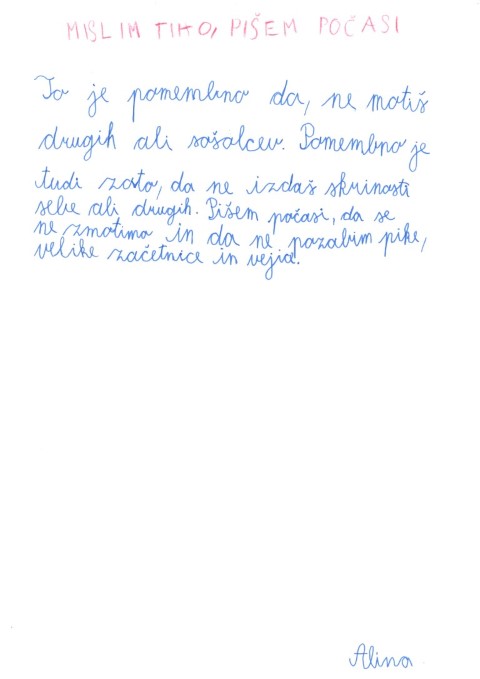 MISLIM TIHO, PIŠEM POČASI
To je pomembno da, ne motiš
drugih ali sošolcev. Pomembno je
tudi zato, da ne izdaš skrivnosti
sebe ali drugih. Pišem počasi, da se
ne zmotimo in da ne pozabim pike,
velike začetnice in vejic.
Alina